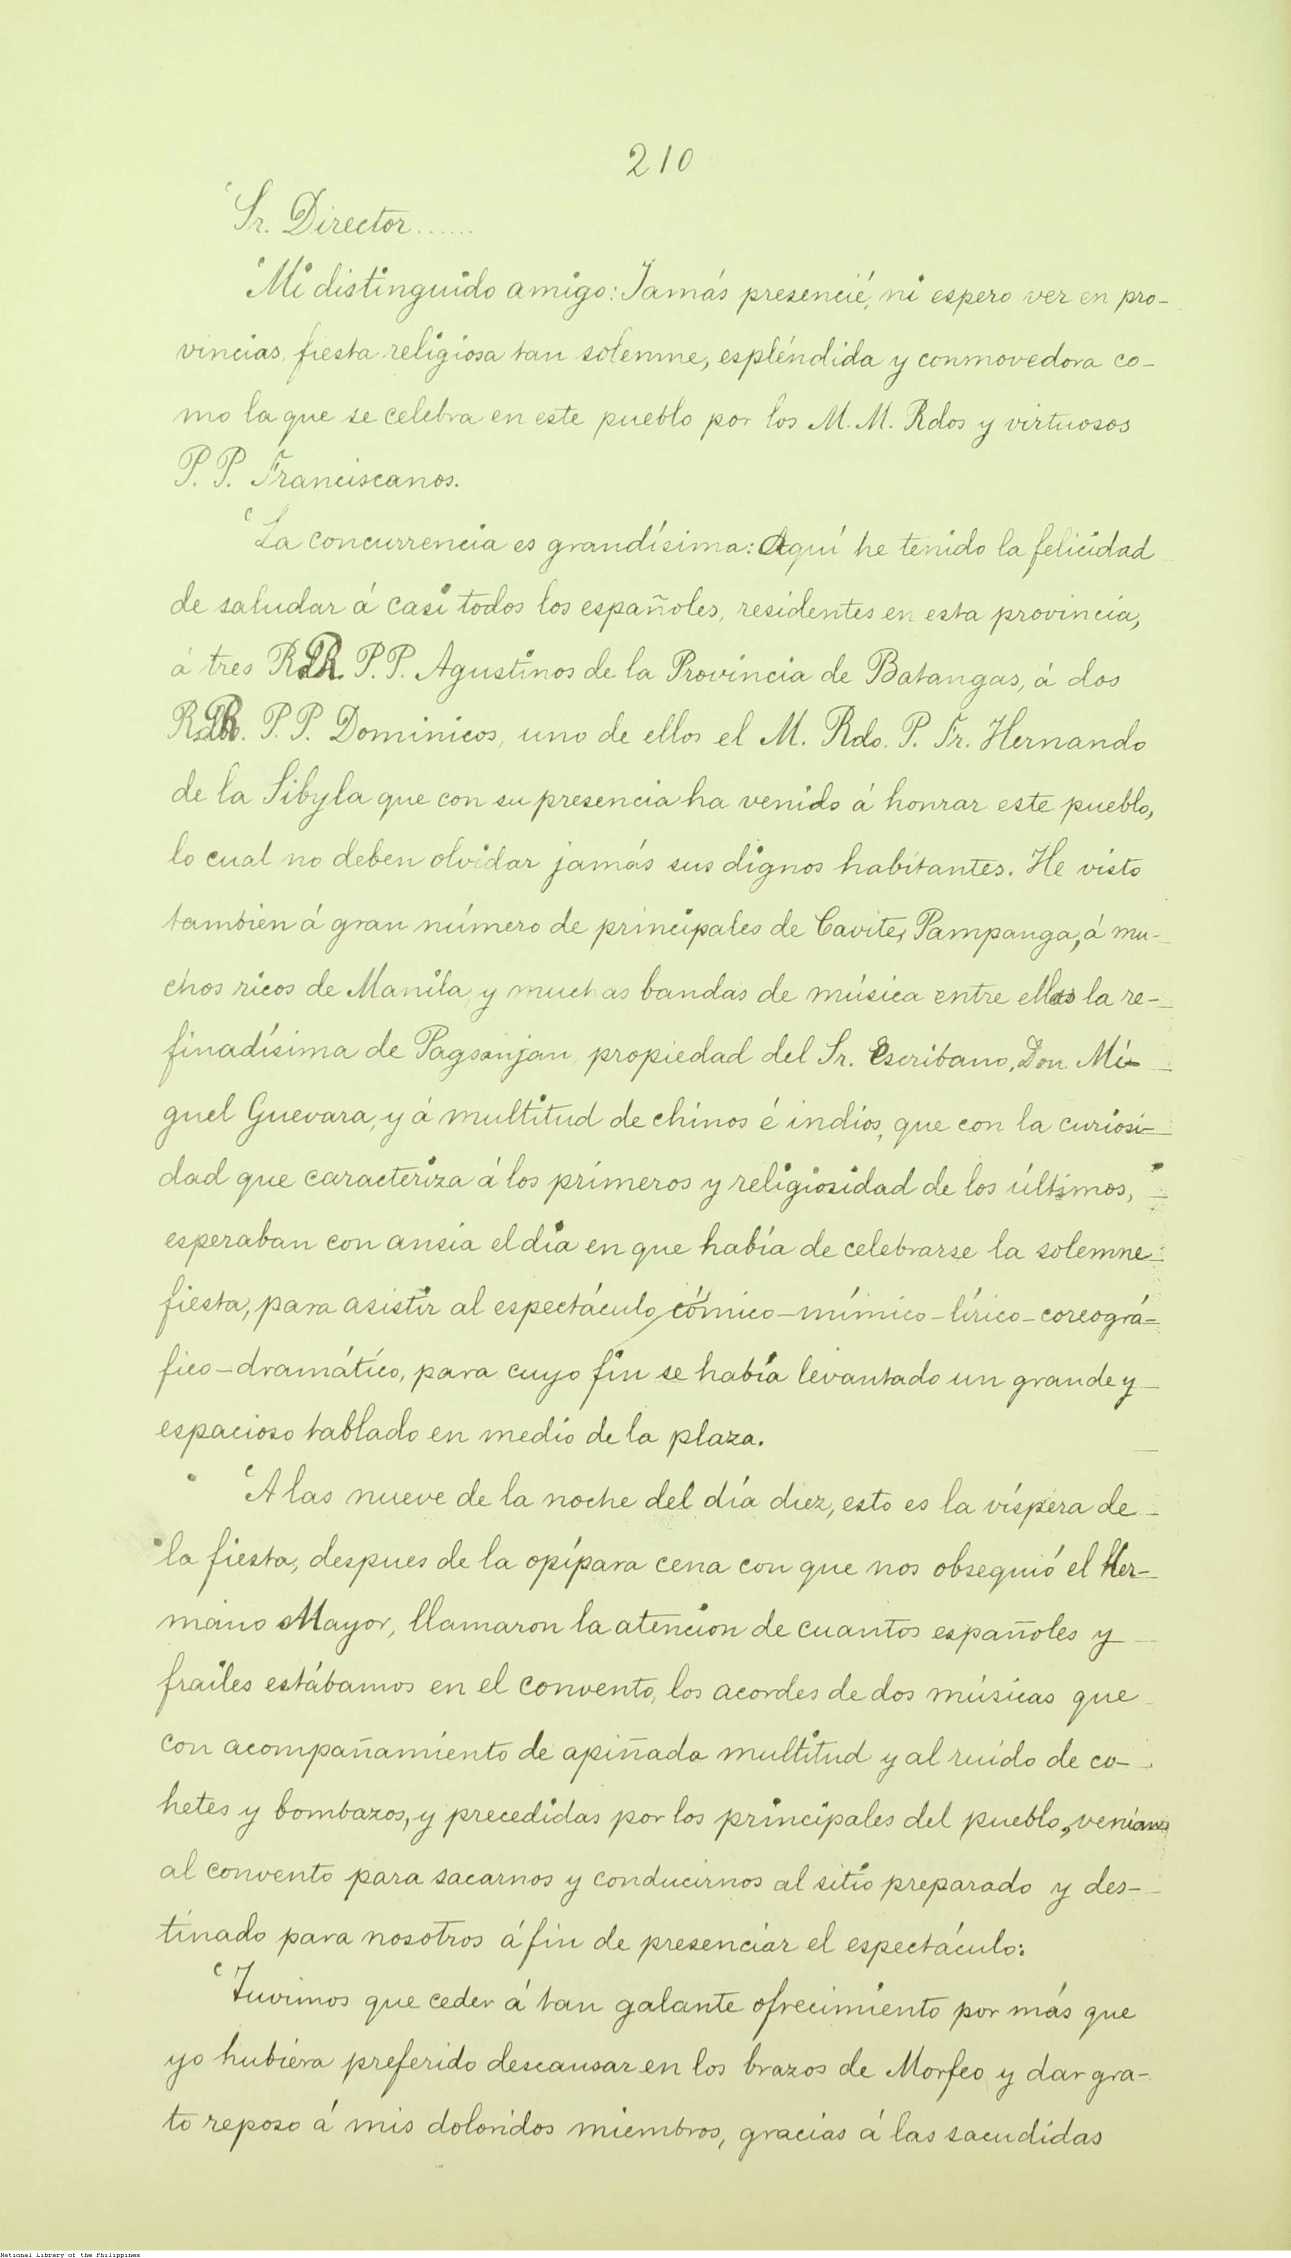 210
'Sr. Director......
'Mi distinguido amigo: Jamás presencié, ni espero ver en pro-
vincias, fiesta religiosa tan solemne, espléndida y conmovedora co-
mo la que se celebra en este pueblo por los M. M. Rdos y virtuosos
P. P. Franciscanos.
'La concurrencia es grandísima: Aquí he tenido la felicidad
de saludar á casi todos los españoles, residentes en esta provincia,
á tres RR. P. P. Agustinos de la Provincia de Batangas, á dos
RR. P. P. Dominicos, uno de ellos el M. Rdo. P. Fr. Hernando
de la Sibyla que con su presencia ha venido á honrar este pueblo,
lo cual no deben olvidar jamás sus dignos habitantes. He visto
tambien á gran número de principales de Cavite, Pampanga, á mu-
chos ricos de Manila y muchas bandas de música entre ellas la re-
finadísima de Pagsanjan, propiedad del Sr. Escribano, Don Mi-
guel Guevara, y á multitud de chinos é indios, que con la curiosi-
dad que caracteriza á los primeros y religiosidad de los últimos,
esperaban con ansia el día en que había de celebrarse la solemne
fiesta, para asistir al espectáculo cómico-mímico-lírico-coreográ-
fico-dramático, para cuyo fin se había levantado un grande y
espacioso tablado en medio de la plaza.
'A las nueve de la noche del día diez, esto es la víspera de
la fiesta, despues de la opípara cena con que nos obsequió el Her-
mano Mayor, llamaron la atencion de cuantos españoles y
frailes estábamos en el convento, los acordes de dos músicas que
con acompañamiento de apiñada multitud y al ruido de co-
hetes y bombazos, y precedidas por los principales del pueblo, venían
al convento para sacarnos y conducirnos al sitio preparado y des-
tinado para nosotros á fin de presenciar el espectáculo:
'Tuvimos que ceder á tan galante ofrecimiento por más que
yo hubiera preferido descansar en los brazos de Morfeo y dar gra-
to reposo á mis doloridos miembros, gracias á las sacudidas
National Library of the Philippines